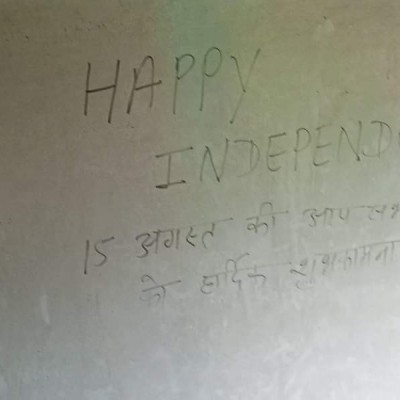 HAPPY
INDEPEND
15 अगस्त की आप सभ
को हार्दिक शुभकामना